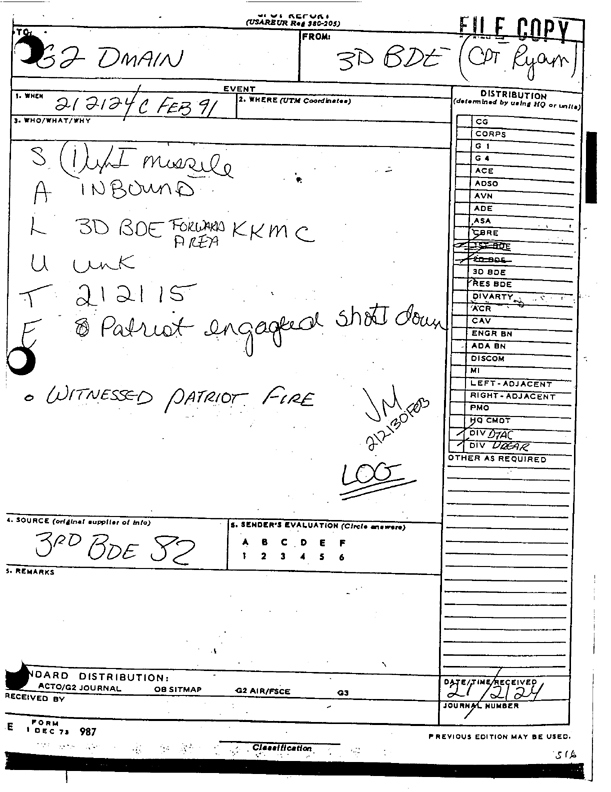 SPOT REPORT
(USAREUR Reg 380-205)
FILE COPY
TO:
G2 DMAIN
FROM:
3D BDE (CPT Ryam)
EVENT
1. WHEN
212124C FEB 91
2. WHERE (UTM Coordinates)
3. WHO/WHAT/WHY
S (1) missile
A INBOUND
L 3D BDE FORWARD AREA KKMC
U unk
T 212115
E Patriot engaged shot down
o WITNESSED PATRIOT FIRE
JM
212130FEB
LOG
DISTRIBUTION
(determined by using HQ or units)
CG
CORPS
G 1
G 4
ACE
ADSO
AVN
ADE
ASA
CBRE
1ST BDE
2D BDE
3D BDE
RES BDE
DIVARTY
ACR
CAV
ENGR BN
ADA BN
DISCOM
MI
LEFT-ADJACENT
RIGHT-ADJACENT
PMO
HQ CMDT
DIV DTAC
DIV DREAR
OTHER AS REQUIRED
4. SOURCE (original supplier of info)
3RD BDE S2
5. SENDER'S EVALUATION (Circle answers)
A B C D E F
1 2 3 4 5 6
5. REMARKS
NDARD DISTRIBUTION:
ACTO/G2 JOURNAL OB SITMAP G2 AIR/FSCE G3
RECEIVED BY
DATE/TIME RECEIVED
21/2124
JOURNAL NUMBER
E FORM
1 DEC 73 987
PREVIOUS EDITION MAY BE USED.
Classification